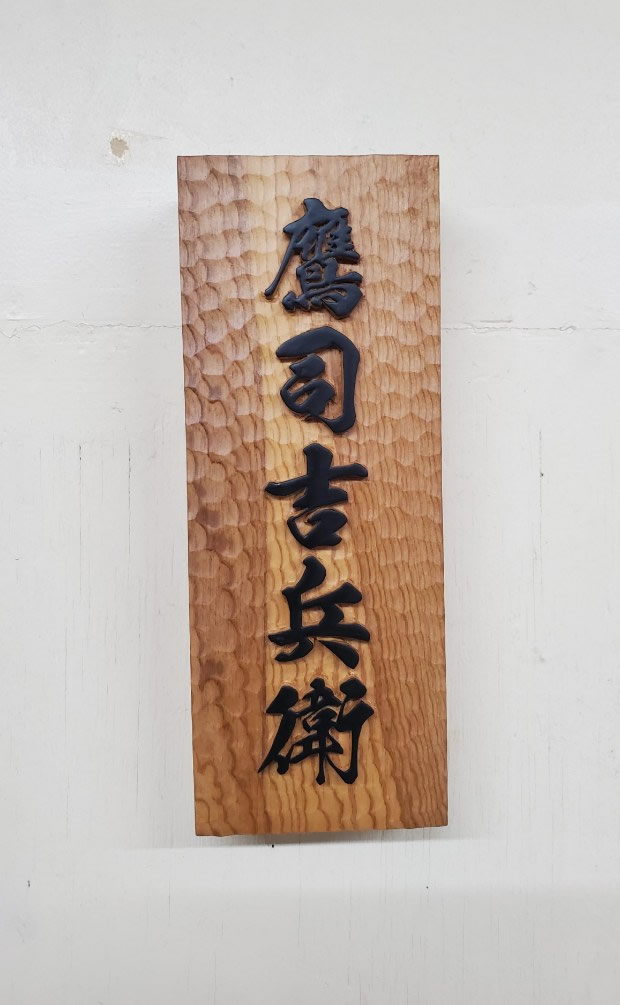 鷹司吉兵衛